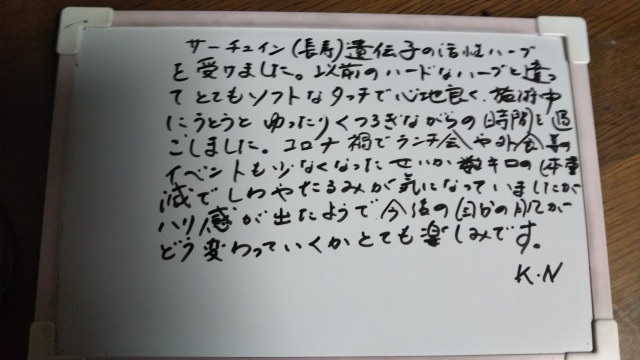 サーチュイン(長寿)遺伝子の活性ハーブ
を受けました。以前のハードなハーブと違っ
てとてもソフトなタッチで心地良く、施術中
にうとうとゆったりくつろぎながらの時間を過
ごしました。コロナ禍でランチ会や外食等の
イベントも少なくなったせいか数キロの体重
減でしわやたるみが気になっていましたが
ハリ感が出たようで今後の自分の肌が
どう変わっていくかとても楽しみです。
K・N